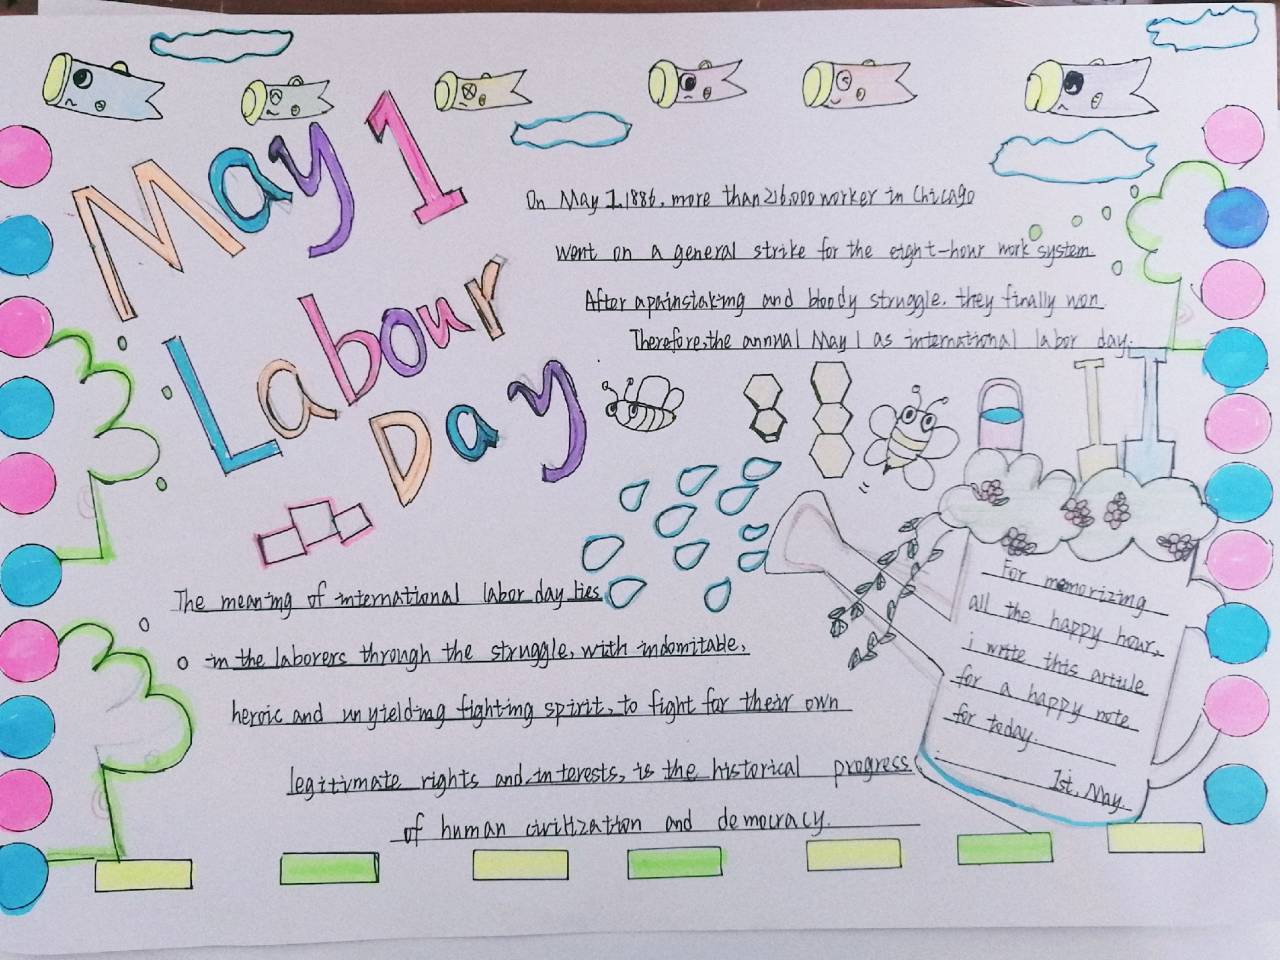 May 1
Labour
Day
On May 1.1886, more than 216,000 worker in Chicago
Went on a general strike for the eight-hour work system
After apainstaking and bloody struggle, they finally won
Therefore, the annual May 1 as international labor day.
The meaning of international labor day lies
in the laborers through the struggle, with indomitable,
heroic and unyielding fighting spirit, to fight for their own
legitimate rights and interests, is the historical progress
of human civilization and democracy.
For memorizing
all the happy hour,
i write this article
for a happy note
for today.
1st, May.